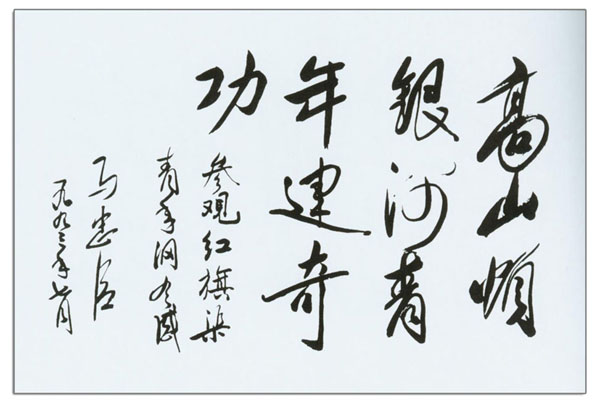 高山倾
银河青
年建奇
功
参观红旗渠
青年洞有感
马忠臣
一九九三年七月